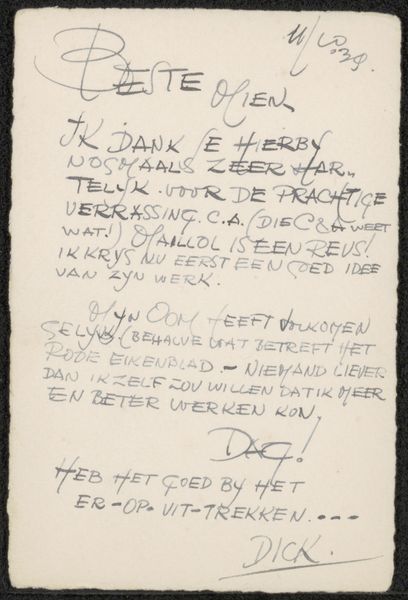 11/10 '39.
BESTE MIEN,
IK DANK JE HIERBY
NOGMAALS ZEER HAR-
TELYK VOOR DE PRACHTIGE
VERRASSING. C.A. (DIE C & A WEET
WAT!) MAILLOL IS EEN REUS!
IK KRYG NU EERST EEN GOED IDEE
VAN ZYN WERK.
MYN OOM HEEFT VOLKOMEN
GELYK (BEHALVE WAT BETREFT HET
RODE EIKENBLAD. – NIEMAND LIEVER
DAN IK ZELF ZOU WILLEN DAT IK MEER
EN BETER WERKEN KON.
DAG!
HEB HET GOED BY HET
ER-OP-UIT-TREKKEN. ---
DICK.